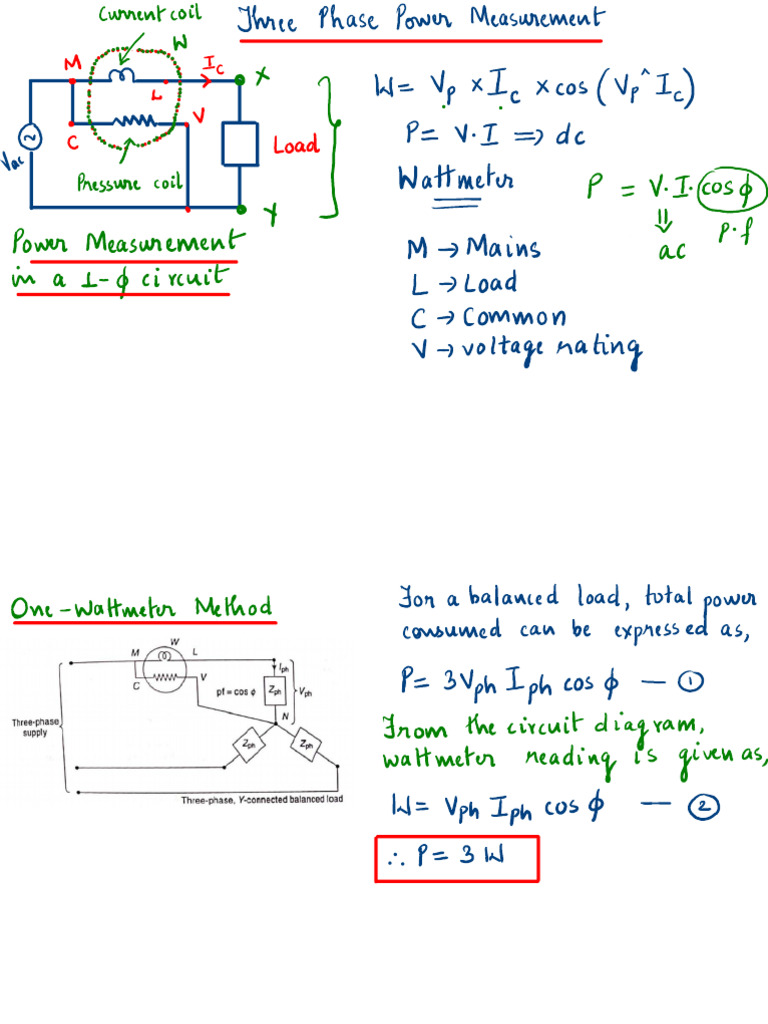 Three Phase Power Measurement
Current coil
W
M
I_c
X
L
C
V
Vac
Load
Pressure coil
Y
Power Measurement
in a 1-ϕ circuit
W = V_p × I_c × cos (V_p ^ I_c)
P = V·I ⇒ dc
Wattmeter
P = V·I·cos ϕ
⇓
ac
p.f
M → Mains
L → Load
C → Common
V → voltage rating
One-Wattmeter Method
W
M
L
C
V
I_ph
pf = cos ϕ
Z_ph
V_ph
N
Three-phase
supply
Z_ph
Z_ph
Three-phase, Y-connected balanced load
For a balanced load, total power
consumed can be expressed as,
P = 3 V_ph I_ph cos ϕ — ①
From the circuit diagram,
wattmeter reading is given as,
W = V_ph I_ph cos ϕ — ②
∴ P = 3 W